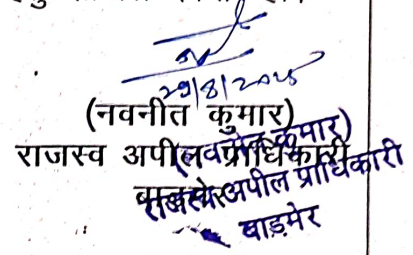 29/8/2025
(नवनीत कुमार)
राजस्व अपील प्राधिकारी
बाड़मेर
(नवनीत कुमार)
राजस्व अपील प्राधिकारी
बाड़मेर